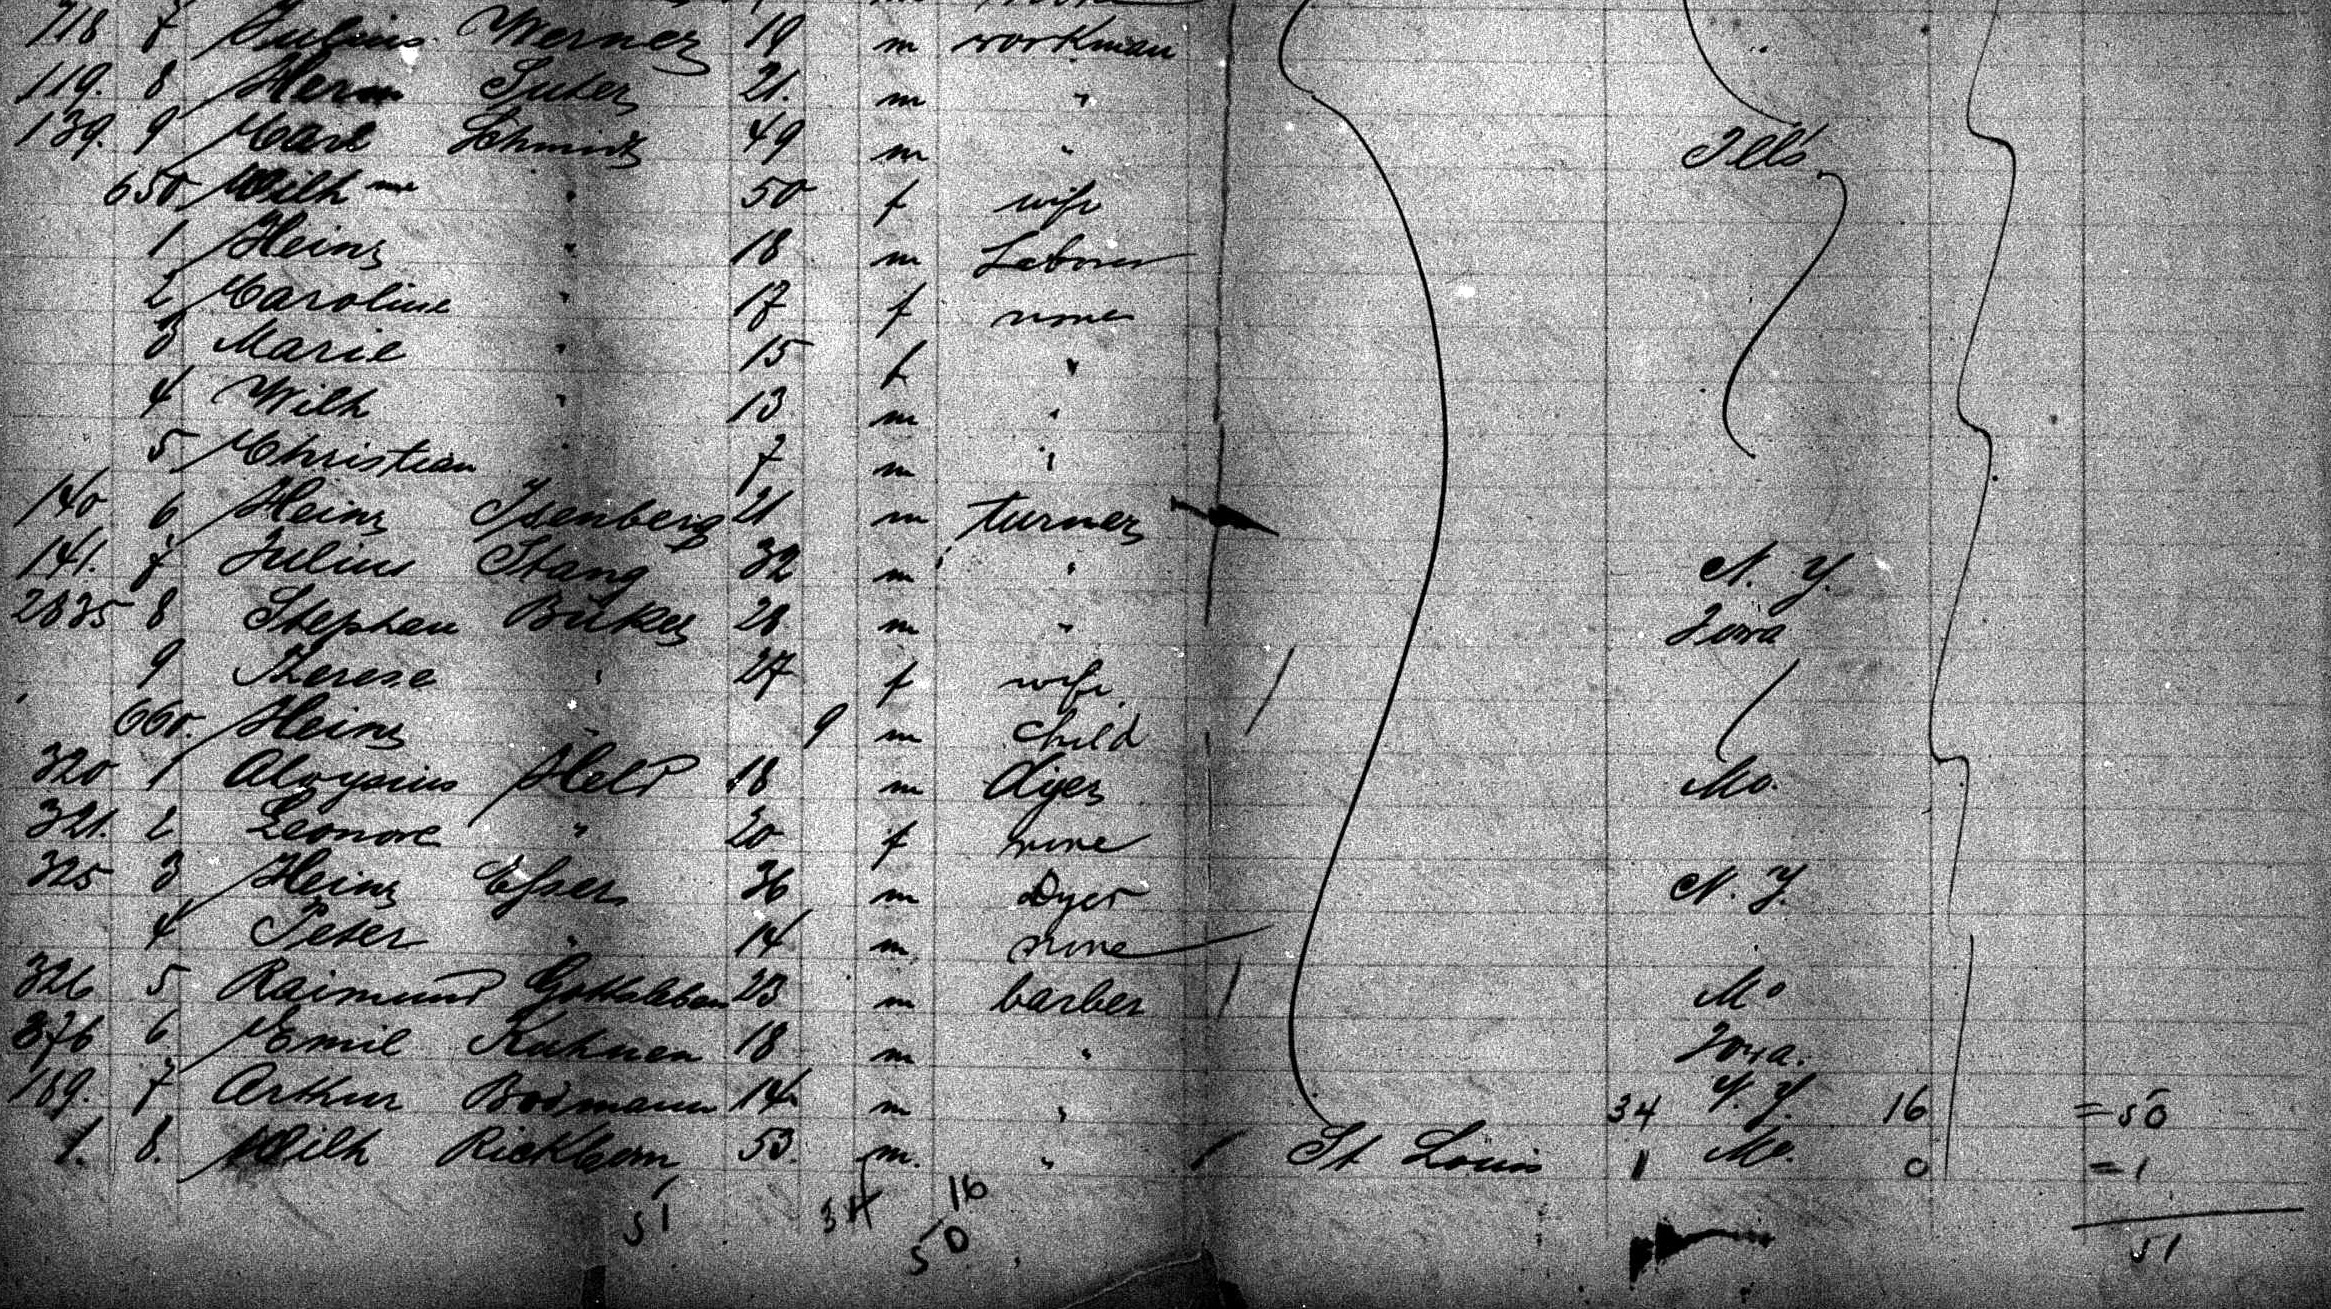 118 7 Julius Werner 19 m workman
119. 8 Herm Suter 21. m "
139. 9 Carl Schmidt 49 m " Ills
650 Wilh me " 50 f wife
1 Heinr " 18 m Laborer
2 Caroline " 17 f none
3 Marie " 15 f "
4 Wilh " 13 m "
5 Christian " 7 m "
140 6 Heinr Isenberg 21 m turner
141. 7 Julius Stang 32 m " N. Y.
2835 8 Stephan Büker 28 m " Iowa
9 Therese " 27 f wife
660. Heinr " 9 m child
320 1 Aloysius Held 18 m dyer Mo.
321. 2 Leonore " 20 f none
325 3 Heinr Esser 36 m Dyer N. Y.
4 Peter " 14 m none "
326 5 Raimund Gottsleben 23 m barber Mo
376 6 Emil Kuhnen 18 m " Iowa.
189. 7 Arthur Bodmann 14 m " 34 N. Y. 16 = 50
1. 8. Wilh 53. m. " St Louis 1 Mo. 0 = 1
51 34 16
50 51